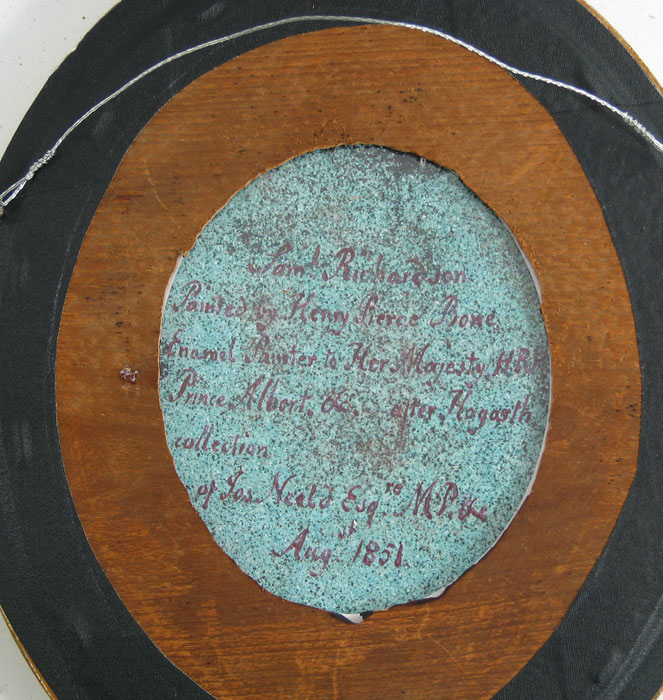 Sam.l Richardson
Painted by Henry Pierce Bone
Enamel Painter to Her Majesty, H.R.H
Prince Albert, &c. after Hogarth
collection
of Jos. Neeld Esq.re M.P. &c
Aug.st 1851.